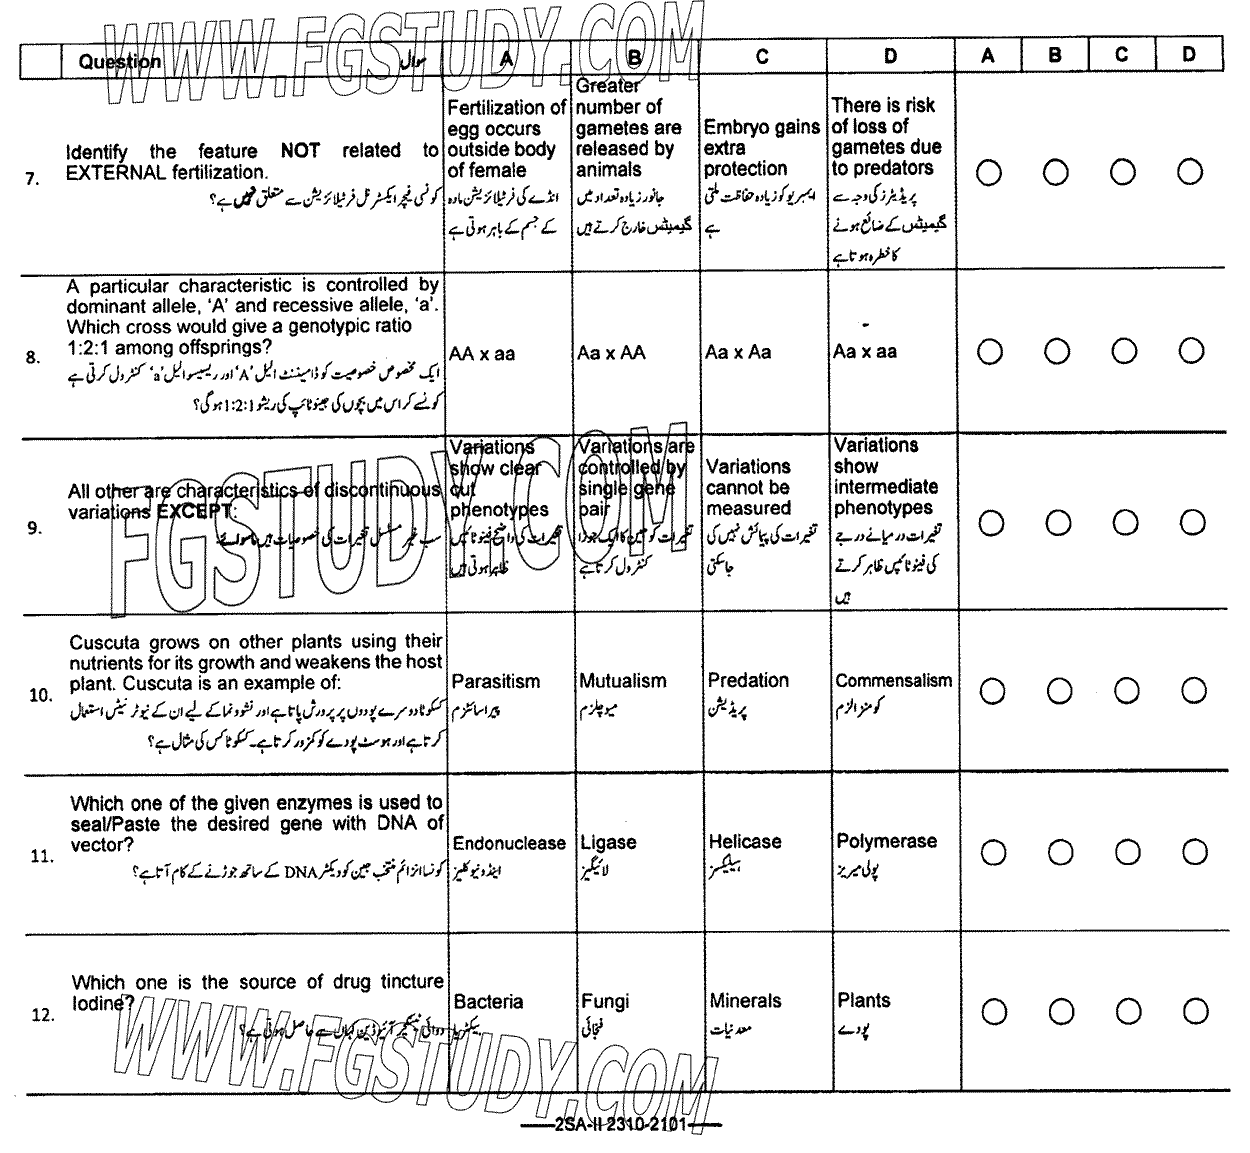 WWW.FGSTUDY.COM
Question سوال A B C D A B C D
7.
Identify the feature NOT related to
EXTERNAL fertilization.
کونسی فیچر ایکسٹرنل فرٹیلائزیشن سے متعلق نہیں ہے؟
Fertilization of
egg occurs
outside body
of female
انڈے کی فرٹیلائزیشن مادہ
کے جسم کے باہر ہوتی ہے
Greater
number of
gametes are
released by
animals
جانور زیادہ تعداد میں
گیمیٹس خارج کرتے ہیں
Embryo gains
extra
protection
ایمبریو کو زیادہ حفاظت ملتی
ہے
There is risk
of loss of
gametes due
to predators
پریڈیٹرز کی وجہ سے
گیمیٹس کے ضائع ہونے
کا خطرہ ہوتا ہے
8.
A particular characteristic is controlled by
dominant allele, ‘A’ and recessive allele, ‘a’.
Which cross would give a genotypic ratio
1:2:1 among offsprings?
ایک مخصوص خصوصیت کو ڈامیننٹ الیل ‘A’ اور ریسیسو الیل ‘a’ کنٹرول کرتی ہے
کونسے کراس میں بچوں کی جینوٹائپ کی ریشو 1:2:1 ہوگی؟
AA x aa
Aa x AA
Aa x Aa
Aa x aa
9.
All other are characteristics of discontinuous
variations EXCEPT:
سب غیر مسلسل تغیرات کی خصوصیات ہیں ماسوائے:
Variations
show clear
cut
phenotypes
تغیرات کی واضح فینوٹائپس
ظاہر ہوتی ہیں
Variations are
controlled by
single gene
pair
تغیرات کو جین کا ایک جوڑا
کنٹرول کرتا ہے
Variations
cannot be
measured
تغیرات کی پیمائش نہیں کی
جاسکتی
Variations
show
intermediate
phenotypes
تغیرات درمیانے درجے
کی فینوٹائپس ظاہر کرتے
ہیں
FGSTUDY.COM
10.
Cuscuta grows on other plants using their
nutrients for its growth and weakens the host
plant. Cuscuta is an example of:
کسکوٹا دوسرے پودوں پر پرورش پاتا ہے اور نشوونما کے لیے ان کے نیوٹرینٹس استعمال
کرتا ہے اور ہوسٹ پودے کو کمزور کرتا ہے۔ کسکوٹا کس کی مثال ہے؟
Parasitism
پیراسائٹزم
Mutualism
میوچلزم
Predation
پریڈیشن
Commensalism
کومنزالزم
11.
Which one of the given enzymes is used to
seal/Paste the desired gene with DNA of
vector?
کونسا انزائم منتخب جین کو ویکٹر DNA کے ساتھ جوڑنے کے کام آتا ہے؟
Endonuclease
اینڈونیوکلیز
Ligase
لائیگیز
Helicase
ہیلیکیز
Polymerase
پولی میریز
12.
Which one is the source of drug tincture
Iodine?
دوائی ٹینکچر آئیوڈین کہاں سے حاصل ہوتی ہے؟
Bacteria
بیکٹیریا
Fungi
فنجائی
Minerals
معدنیات
Plants
پودے
WWW.FGSTUDY.COM
——2SA-II 2310-2101——